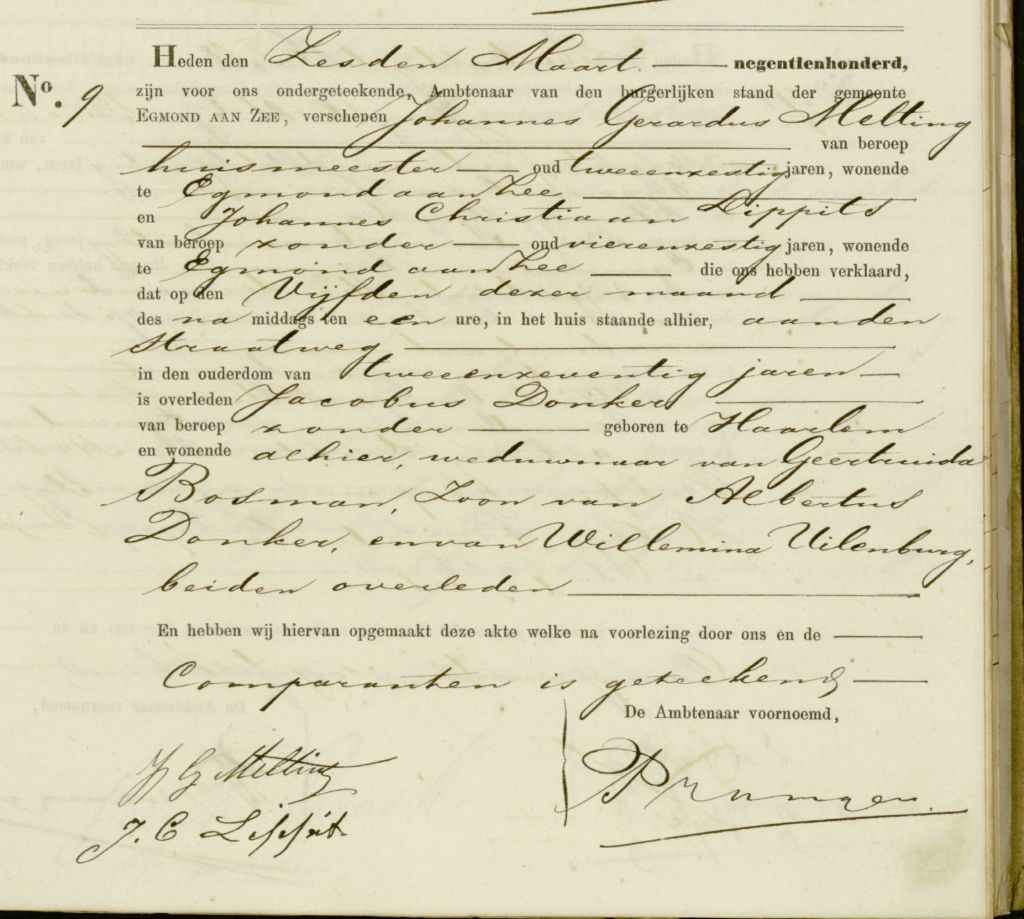 Heden den Zesden Maart negentienhonderd,
No. 9
zijn voor ons ondergeteekende, Ambtenaar van den burgerlijken stand der gemeente
EGMOND AAN ZEE, verschenen Johannes Gerardus Melting
van beroep
huismeester oud tweeenzestig jaren, wonende
te Egmond aan Zee
en Johannes Christiaan Lippits
van beroep zonder oud vierenzestig jaren, wonende
te Egmond aan Zee die ons hebben verklaard,
dat op den Vijfden dezer maand
des na middags ten een ure, in het huis staande alhier, aan den
Straatweg
in den ouderdom van tweeenzeventig jaren
is overleden Jacobus Donker
van beroep zonder geboren te Haarlem
en wonende alhier, weduwnaar van Geertruida
Bosman, Zoon van Albertus
Donker, en van Willemina Uilenburg,
beiden overleden
En hebben wij hiervan opgemaakt deze akte welke na voorlezing door ons en de
Comparanten is geteekend
De Ambtenaar voornoemd,
J G Melting
J. C Lippits